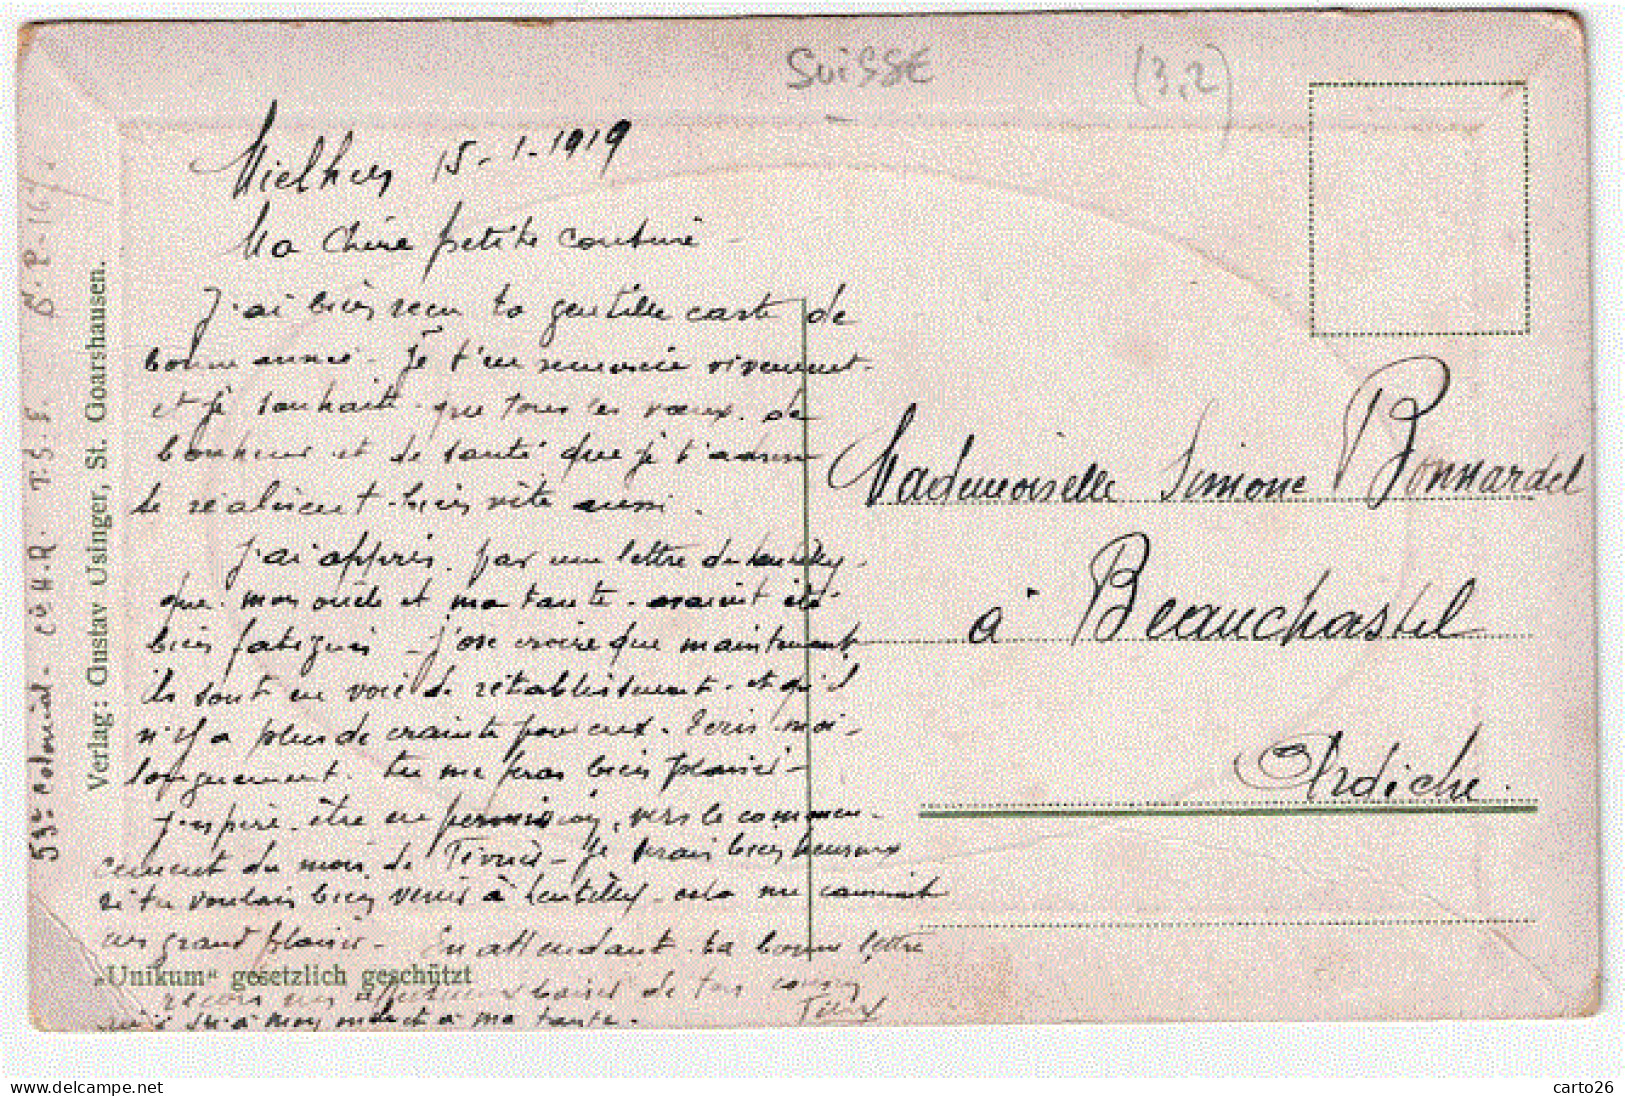 SUISSE
(3,2)
Mielhen 15-1-1919
Ma Chère petite cousine -
J'ai bien reçu ta gentille carte de
bonne année - Je t'en remercie vivement -
et je souhaite que tous les vœux de
bonheur et de santé que je t'adresse
se réalisent bien vite aussi.
J'ai appris par une lettre de
que mon oncle et ma tante avaient été
bien fatigués - j'ose croire que maintenant
ils sont en voie de rétablissement et qu'il
n'y a plus de crainte pour eux. Ecris-moi
longuement tu me feras bien plaisir -
J'espère être en permission, vers le commen-
cement du mois de Février - Je serais bien heureux
si tu voulais bien venir à cela me
un grand plaisir - En attendant ta bonne lettre
reçois un affectueux baiser de ton cousin
à mon oncle et à ma tante. Félix
Mademoiselle Simone Bonnardel
à Beauchastel
Ardèche.
„Unikum" gesetzlich geschützt
Verlag: Gustav Usinger, St. Goarshausen.
53e Colonial - Cie H.R. T.S.F. S.P. 167.
carto26
https://www.delcampe.net